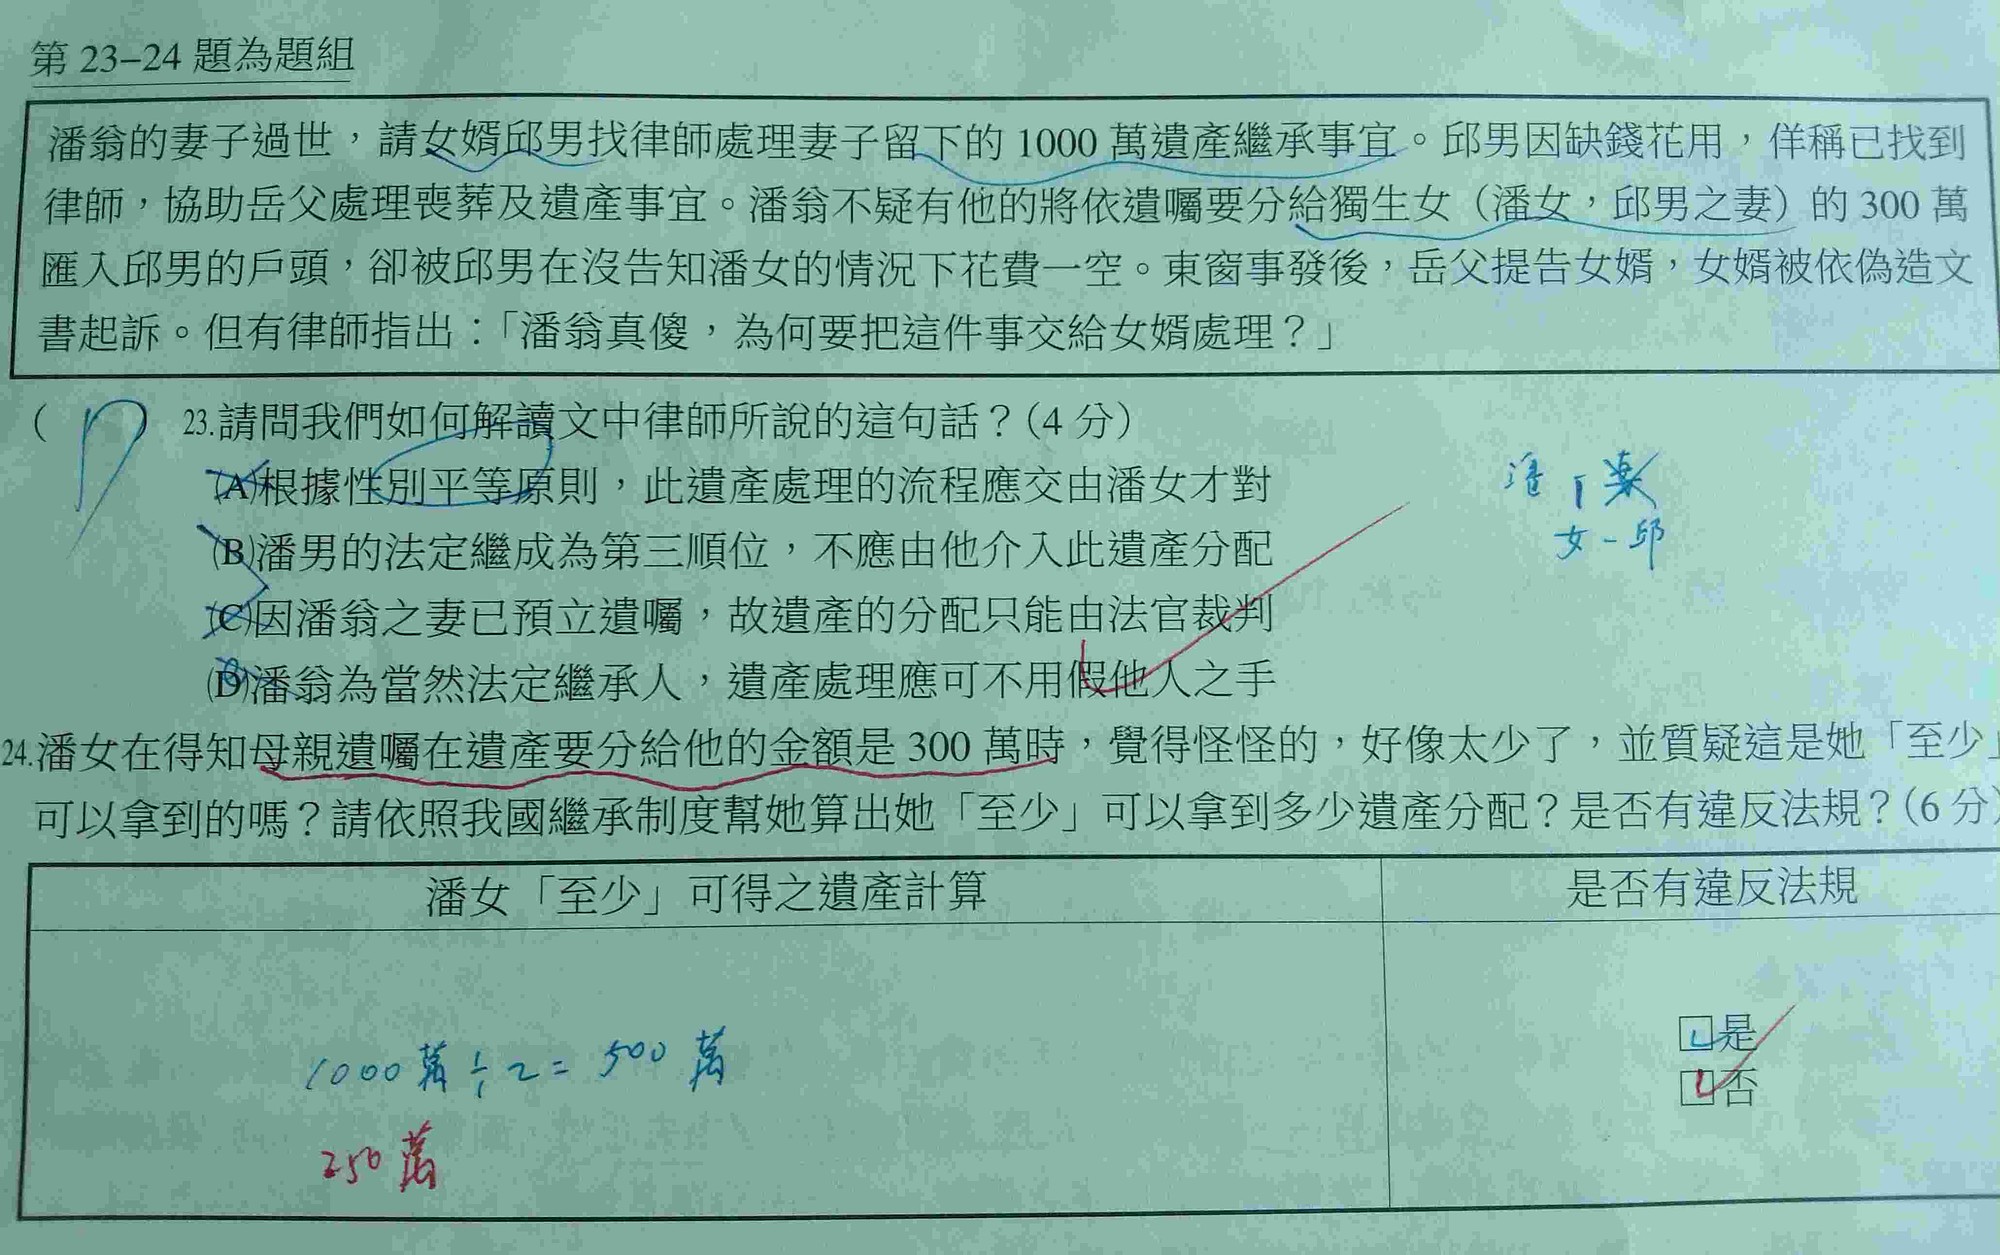 第 23–24 題為題組
潘翁的妻子過世，請女婿邱男找律師處理妻子留下的 1000 萬遺產繼承事宜。邱男因缺錢花用，佯稱已找到
律師，協助岳父處理喪葬及遺產事宜。潘翁不疑有他的將依遺囑要分給獨生女（潘女，邱男之妻）的 300 萬
匯入邱男的戶頭，卻被邱男在沒告知潘女的情況下花費一空。東窗事發後，岳父提告女婿，女婿被依偽造文
書起訴。但有律師指出：「潘翁真傻，為何要把這件事交給女婿處理？」
( D ) 23.請問我們如何解讀文中律師所說的這句話？(4 分)
(A)根據性別平等原則，此遺產處理的流程應交由潘女才對
潘
(B)潘男的法定繼成為第三順位，不應由他介入此遺產分配
女－邱
(C)因潘翁之妻已預立遺囑，故遺產的分配只能由法官裁判
(D)潘翁為當然法定繼承人，遺產處理應可不用假他人之手
24.潘女在得知母親遺囑在遺產要分給他的金額是 300 萬時，覺得怪怪的，好像太少了，並質疑這是她「至少」
可以拿到的嗎？請依照我國繼承制度幫她算出她「至少」可以拿到多少遺產分配？是否有違反法規？(6 分)
潘女「至少」可得之遺產計算
是否有違反法規
1000 萬 ÷ 2 = 500 萬
250 萬
□是
□否